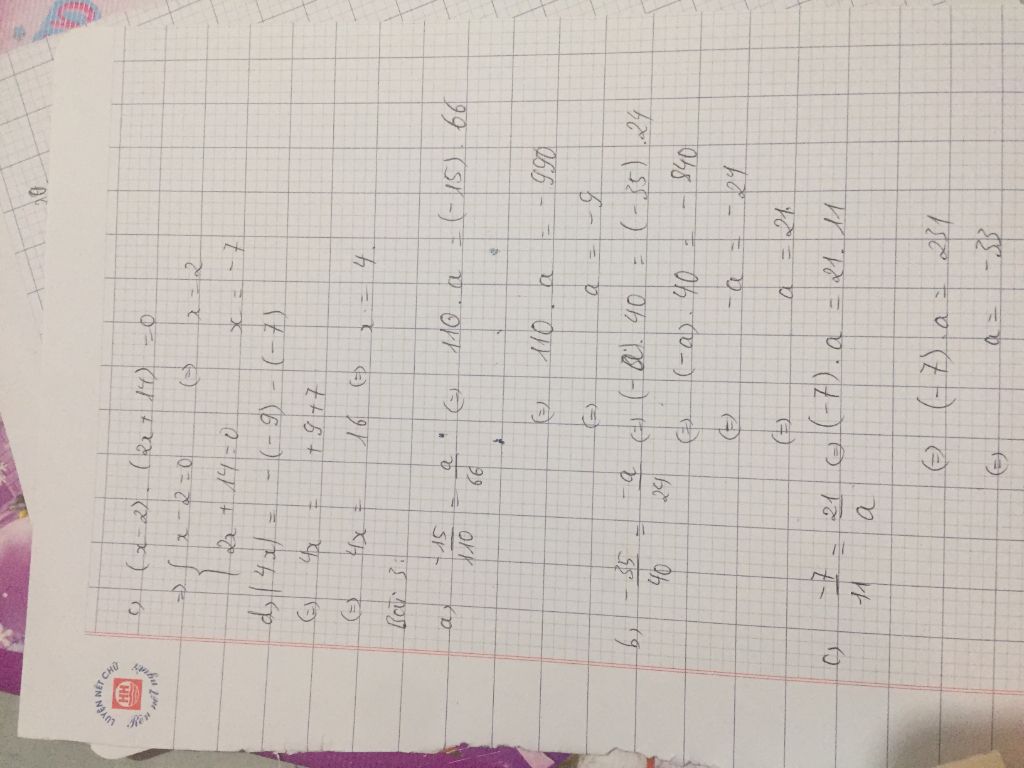 c, (x-2).(2x+14)=0
=> { x-2=0 (=) x=2
2x+14=0 x=-7
d, |4x|= -(-9)-(-7)
(=) 4x = +9+7
(=) 4x = 16 (=) x=4.
Bài 3:
a, -15/110 = a/66 (=) 110.a=(-15).66
(=) 110.a=-990
(=) a=-9
b, -35/40 = -a/24 (=) (-a).40=(-35).24
(=) (-a).40=-840
(=) -a=-21
(=) a=21.
c, -7/11 = 21/a (=) (-7).a=21.11
(=) (-7).a=231
(=) a=-33
LUYỆN NÉT CHỮ
HH
Rèn nết người